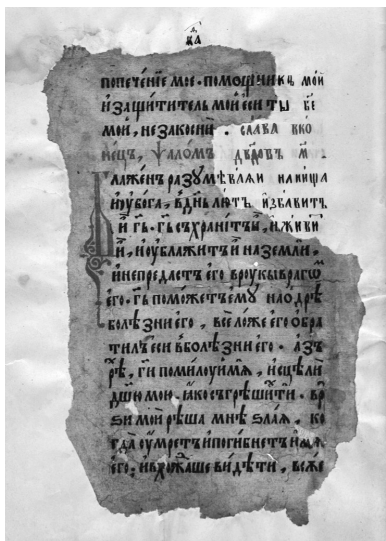 к҃а
попече́нїе мое. помощникъ мой
и защи́титель мой еси ты бе
мой, не закосни. слава вко
нецъ, ѱаломъ
лаженъ разумѣвляи на нища
и убога, въ днь лютъ избавитъ
и гь. гь съхранитъ и, и живи
и, и ублажитъ и на земли,
и непредастъ его вроукы врагѡ
его. гь поможетъ ему на одрѣ
болѣзни его, все ложе его обра
тилъ еси вболѣзни его. азъ
рѣ, ги помилуи мѧ, исцѣли
дшю мою. ꙗко съгрѣши ти. вр
ѕи мои рѣша мнѣ ѕлаѧ, ко
гда оумретъ и погибнетъ имѧ
его. и вхожаше видѣти, всѫе